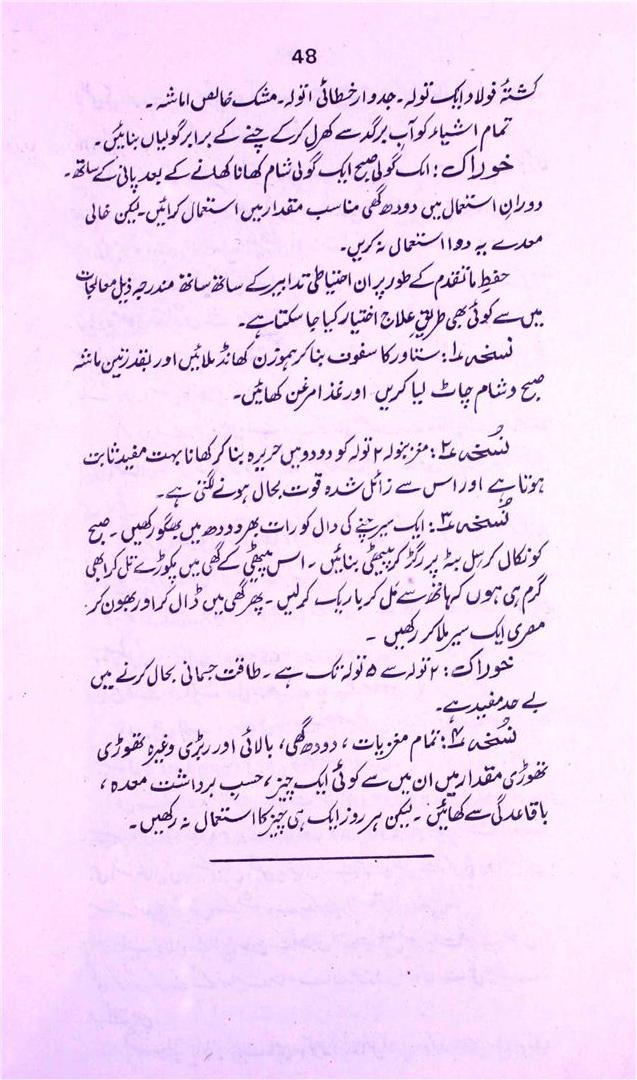 48
کشتۂ فولاد ایک تولہ۔ جدوار خطائی ۱ تولہ۔ مشک خالص ۱ ماشہ۔
تمام اشیاء کو آب برگد سے کھرل کرکے چنے کے برابر گولیاں بنائیں۔
خوراک: ایک گولی صبح ایک گولی شام کھانا کھانے کے بعد پانی کے ساتھ۔
دوران استعمال میں دودھ گھی مناسب مقدار میں استعمال کرائیں۔ لیکن خالی
معدے یہ دوا استعمال نہ کریں۔
حفظ ما تقدم کے طور پر ان احتیاطی تدابیر کے ساتھ ساتھ مندرجہ ذیل معالجات
میں سے کوئی بھی طریق علاج اختیار کیا جا سکتا ہے۔
نسخہ ۱: ستاور کا سفوف بنا کر ہموزن کھانڈ ملائیں اور بقدر تین ماشہ
صبح و شام چاٹ لیا کریں اور غذا مرغن کھائیں۔
نسخہ ۲: مغز بنولہ ۲ تولہ کو دودھ میں حریرہ بنا کر کھانا بہت مفید ثابت
ہوتا ہے اور اس سے زائل شدہ قوت بحال ہونے لگتی ہے۔
نسخہ ۳: ایک سیر چنے کی دال کو رات بھر دودھ میں بھگو رکھیں۔ صبح
کو نکال کر سل بٹہ پر رگڑ کر پیٹھی بنائیں۔ اس پیٹھی کے گھی میں پکوڑے تل کر ابھی
گرم ہی ہوں کہ ہاتھ سے مل کر باریک کرلیں۔ پھر گھی میں ڈال کر اور بھون کر
مصری ایک سیر ملا کر رکھیں۔
خوراک: ۲ تولہ سے ۵ تولہ تک ہے۔ طاقت جسمانی بحال کرنے میں
بے حد مفید ہے۔
نسخہ ۴: تمام مغزیات، دودھ گھی، بالائی اور ربڑی وغیرہ تھوڑی
تھوڑی مقدار میں ان میں سے کوئی ایک چیز، حسب برداشت معدہ،
باقاعدگی سے کھائیں۔ لیکن ہر روز ایک ہی چیز کا استعمال نہ رکھیں۔